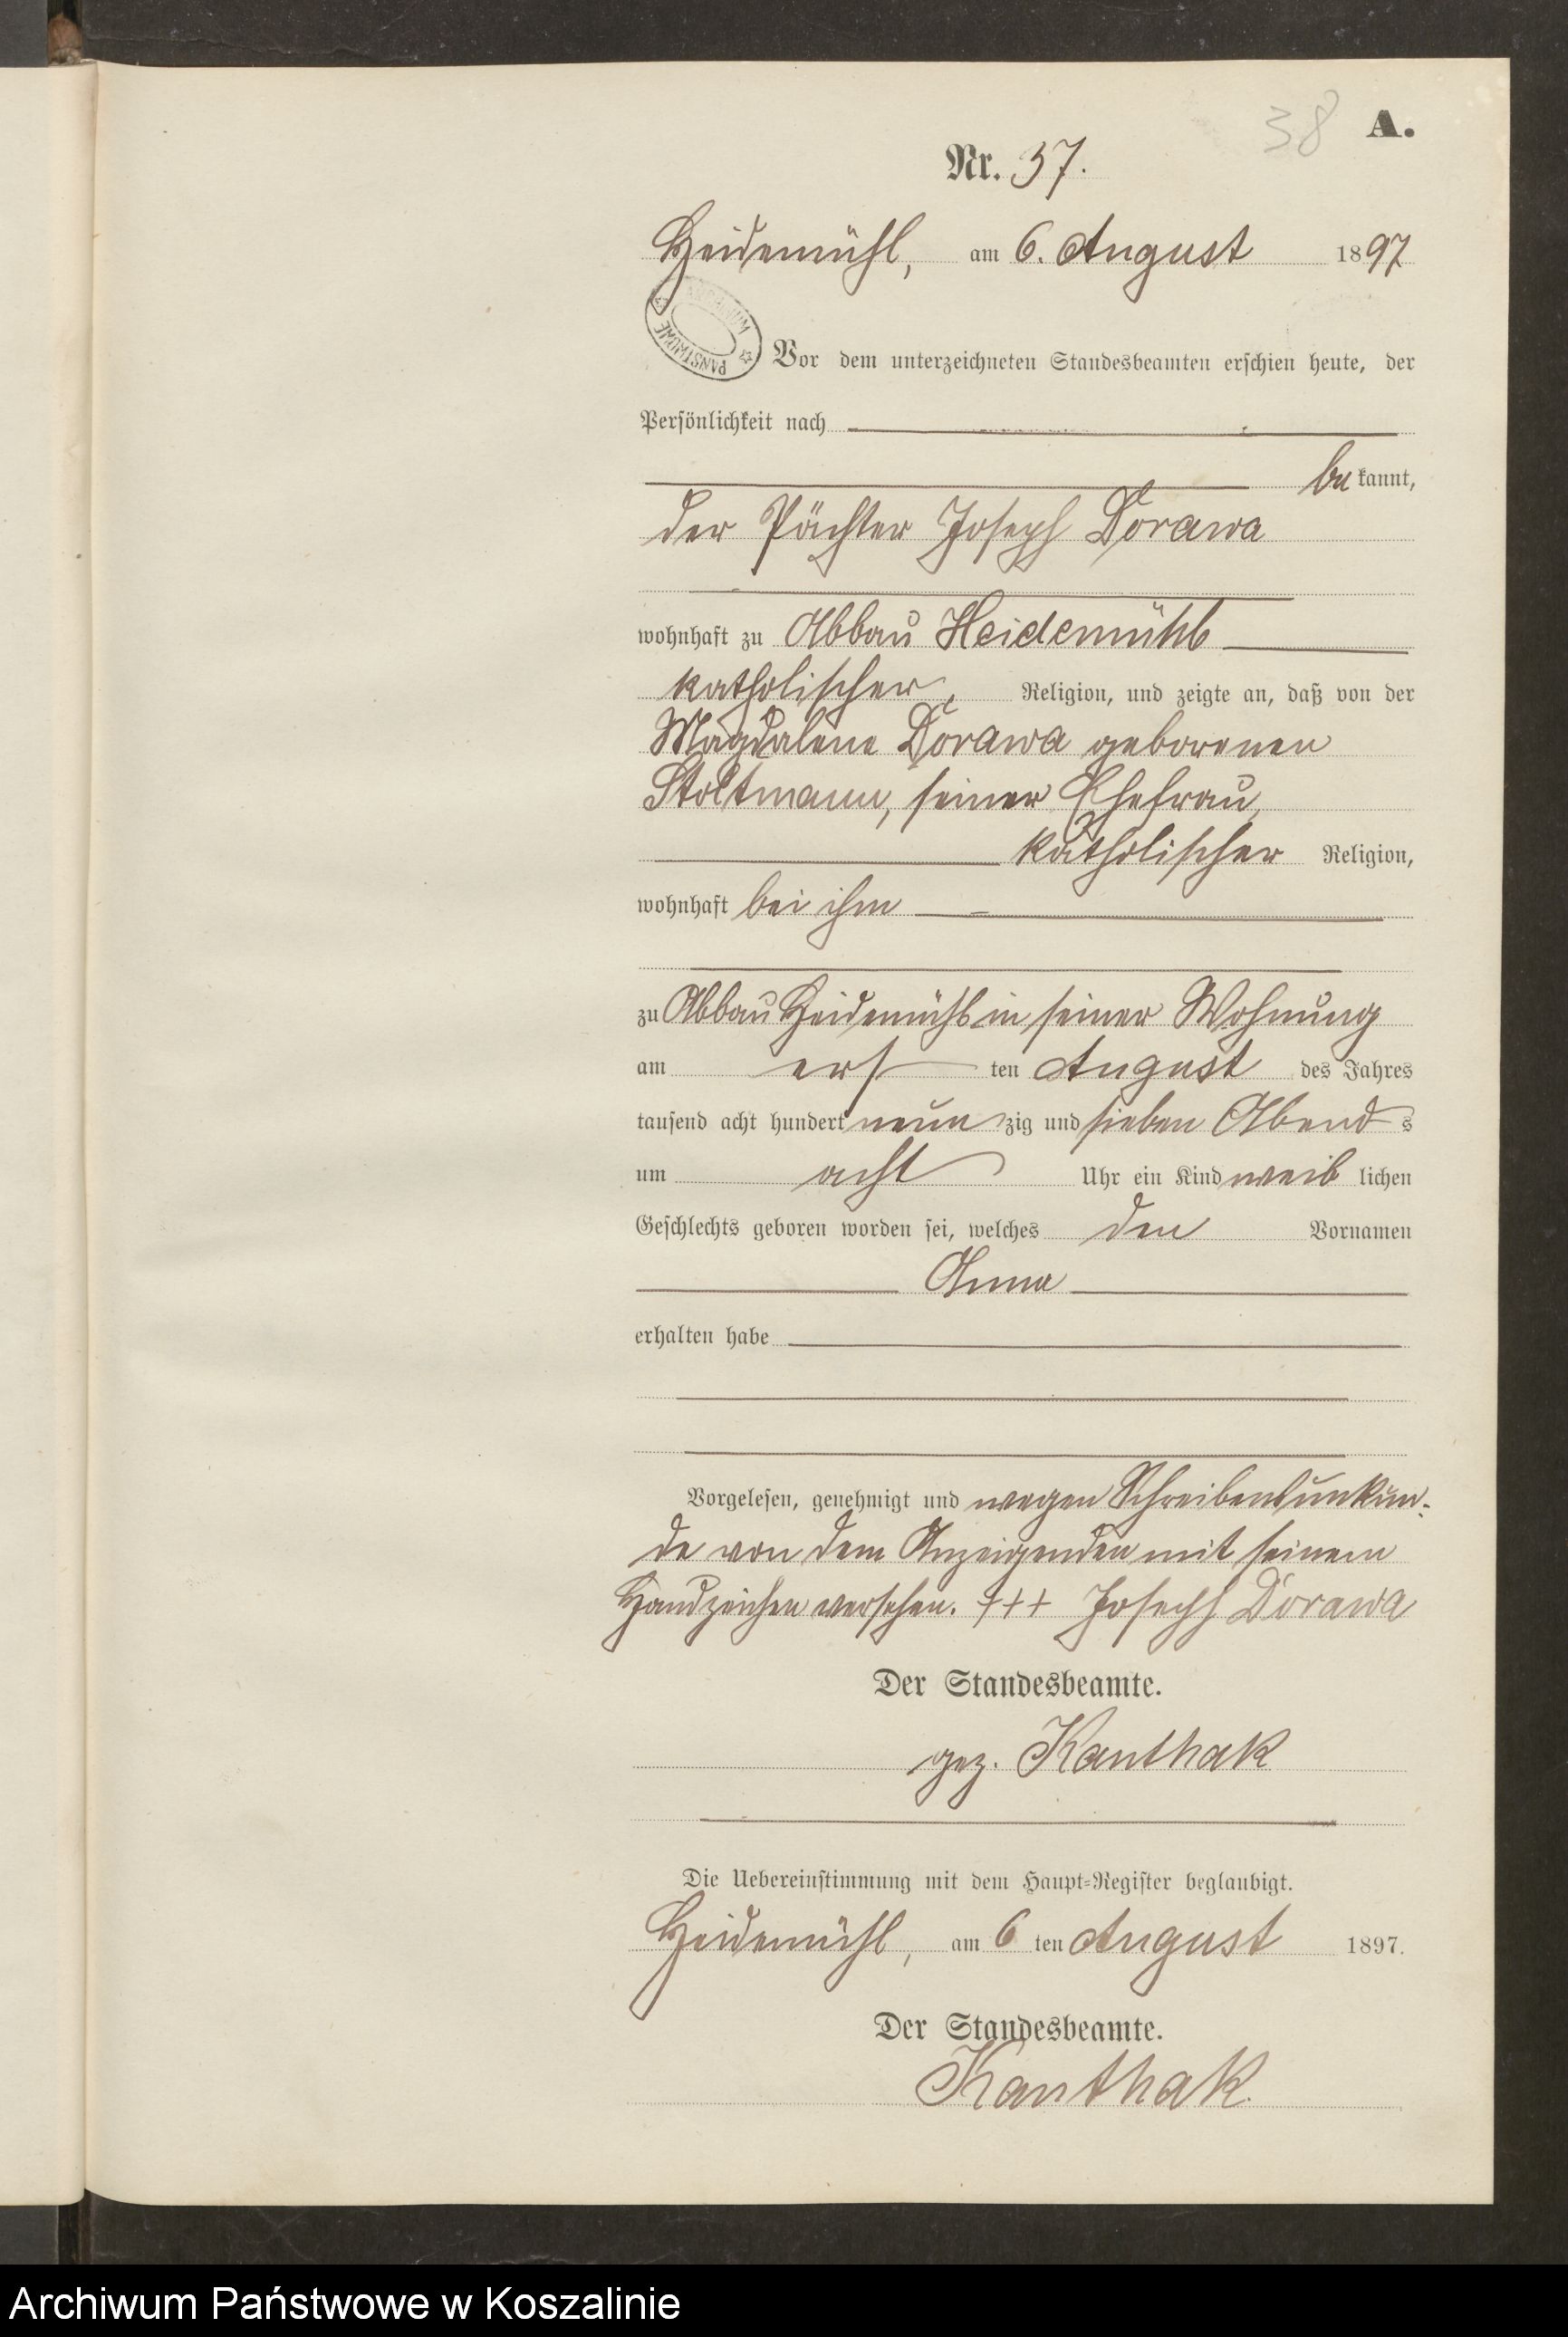 38 A.
Nr. 37.
Heidemühl, am 6. August 1897
PAŃSTWOWE
Vor dem unterzeichneten Standesbeamten erschien heute, der
Persönlichkeit nach
be kannt,
der Pächter Joseph Dorawa
wohnhaft zu Abbau Heidemühl
katholischer Religion, und zeigte an, daß von der
Magdalene Dorawa geborenen
Stoltmann, seiner Ehefrau,
katholischer Religion,
wohnhaft bei ihm
zu Abbau Heidemühl in seiner Wohnung
am ersten August des Jahres
tausend acht hundert neunzig und sieben Abends
um acht Uhr ein Kind weiblichen
Geschlechts geboren worden sei, welches den Vornamen
Anna
erhalten habe
Vorgelesen, genehmigt und wegen Schreibensunkun-
de von dem Anzeigenden mit seinem
Handzeichen versehen. +++ Joseph Dorawa
Der Standesbeamte.
gez. Kanthak
Die Uebereinstimmung mit dem Haupt-Register beglaubigt.
Heidemühl, am 6 ten August 1897.
Der Standesbeamte.
Kanthak.
Archiwum Państwowe w Koszalinie